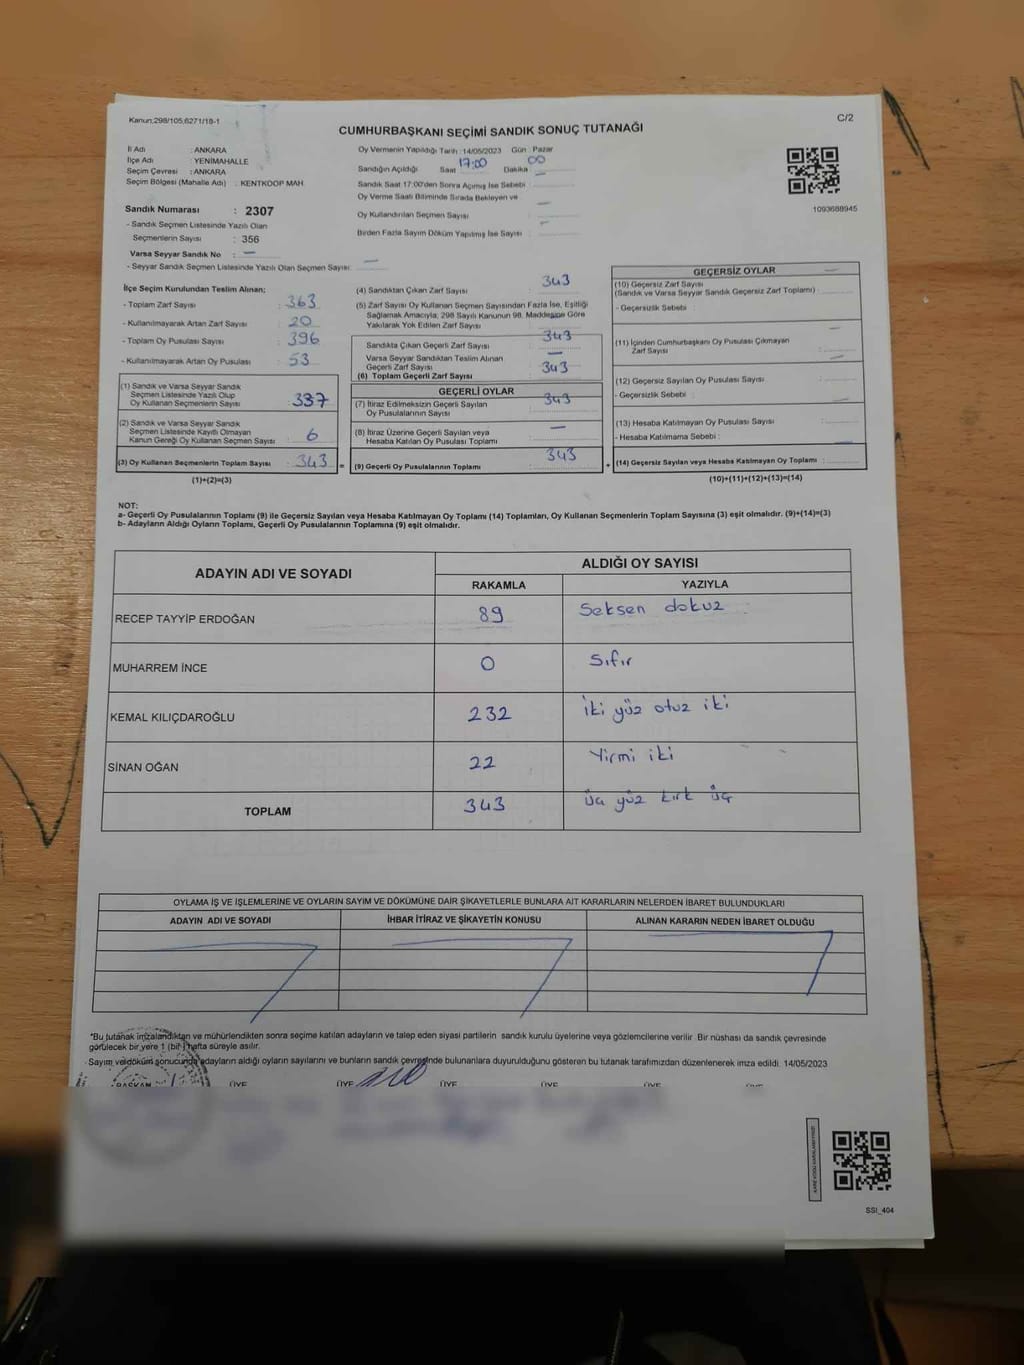 Kanun:298/105,6271/18-1
C/2
CUMHURBAŞKANI SEÇİMİ SANDIK SONUÇ TUTANAĞI
İl Adı : ANKARA
İlçe Adı : YENİMAHALLE
Seçim Çevresi : ANKARA
Seçim Bölgesi (Mahalle Adı) : KENTKOOP MAH.
Sandık Numarası : 2307
- Sandık Seçmen Listesinde Yazılı Olan
Seçmenlerin Sayısı : 356
Varsa Seyyar Sandık No : —
- Seyyar Sandık Seçmen Listesinde Yazılı Olan Seçmen Sayısı: —
Oy Vermenin Yapıldığı Tarih :14/05/2023 Gün : Pazar
Sandığın Açıldığı Saat 17:00 Dakika 00
Sandık Saat 17:00'den Sonra Açımış İse Sebebi : —
Oy Verme Saati Bitiminde Sırada Bekleyen ve
Oy Kullandırılan Seçmen Sayısı : —
Birden Fazla Sayım Döküm Yapılmış İse Sayısı : —
1093688945
İlçe Seçim Kurulundan Teslim Alınan;
- Toplam Zarf Sayısı : 363
- Kullanılmayarak Artan Zarf Sayısı : 20
- Toplam Oy Pusulası Sayısı : 396
- Kullanılmayarak Artan Oy Pusulası : 53
(1) Sandık ve Varsa Seyyar Sandık
Seçmen Listesinde Yazılı Olup
Oy Kullanan Seçmenlerin Sayısı : 337
(2) Sandık ve Varsa Seyyar Sandık
Seçmen Listesinde Kayıtlı Olmayan
Kanun Gereği Oy Kullanan Seçmen Sayısı : 6
(3) Oy Kullanan Seçmenlerin Toplam Sayısı : 343
(1)+(2)=(3)
(4) Sandıktan Çıkan Zarf Sayısı : 343
(5) Zarf Sayısı Oy Kullanan Seçmen Sayısından Fazla İse, Eşitliği
Sağlamak Amacıyla; 298 Sayılı Kanunun 98. Maddesine Göre
Yakılarak Yok Edilen Zarf Sayısı : —
Sandıkta Çıkan Geçerli Zarf Sayısı : 343
Varsa Seyyar Sandıktan Teslim Alınan
Geçerli Zarf Sayısı : —
(6) Toplam Geçerli Zarf Sayısı : 343
GEÇERLİ OYLAR
(7) İtiraz Edilmeksizin Geçerli Sayılan
Oy Pusulalarının Sayısı : 343
(8) İtiraz Üzerine Geçerli Sayılan veya
Hesaba Katılan Oy Pusulası Toplamı : —
= (9) Geçerli Oy Pusulalarının Toplamı : 343
GEÇERSİZ OYLAR
(10) Geçersiz Zarf Sayısı
(Sandık ve Varsa Seyyar Sandık Geçersiz Zarf Toplamı) : —
- Geçersizlik Sebebi : —
(11) İçinden Cumhurbaşkanı Oy Pusulası Çıkmayan
Zarf Sayısı : —
(12) Geçersiz Sayılan Oy Pusulası Sayısı : —
- Geçersizlik Sebebi : —
(13) Hesaba Katılmayan Oy Pusulası Sayısı : —
- Hesaba Katılmama Sebebi : —
+ (14) Geçersiz Sayılan veya Hesaba Katılmayan Oy Toplamı : —
(10)+(11)+(12)+(13)=(14)
NOT:
a- Geçerli Oy Pusulalarının Toplamı (9) ile Geçersiz Sayılan veya Hesaba Katılmayan Oy Toplamı (14) Toplamları, Oy Kullanan Seçmenlerin Toplam Sayısına (3) eşit olmalıdır. (9)+(14)=(3)
b- Adayların Aldığı Oyların Toplamı, Geçerli Oy Pusulalarının Toplamına (9) eşit olmalıdır.
ADAYIN ADI VE SOYADI ALDIĞI OY SAYISI
RAKAMLA YAZIYLA
RECEP TAYYİP ERDOĞAN 89 Seksen dokuz
MUHARREM İNCE 0 Sıfır
KEMAL KILIÇDAROĞLU 232 iki yüz otuz iki
SİNAN OĞAN 22 Yirmi iki
TOPLAM 343 üç yüz kırk üç
OYLAMA İŞ VE İŞLEMLERİNE VE OYLARIN SAYIM VE DÖKÜMÜNE DAİR ŞİKAYETLERLE BUNLARA AİT KARARLARIN NELERDEN İBARET BULUNDUKLARI
ADAYIN ADI VE SOYADI İHBAR İTİRAZ VE ŞİKAYETİN KONUSU ALINAN KARARIN NEDEN İBARET OLDUĞU
*Bu tutanak imzalandıktan ve mühürlendikten sonra seçime katılan adayların ve talep eden siyasi partilerin sandık kurulu üyelerine veya gözlemcilerine verilir. Bir nüshası da sandık çevresinde
görülecek bir yere 1 (bir) hafta süreyle asılır.
Sayım ve döküm sonucunda adayların aldığı oyların sayılarını ve bunların sandık çevresinde bulunanlara duyurulduğunu gösteren bu tutanak tarafımızdan düzenlenerek imza edildi. 14/05/2023
BAŞKAN ÜYE ÜYE ÜYE ÜYE ÜYE ÜYE
SSI_404